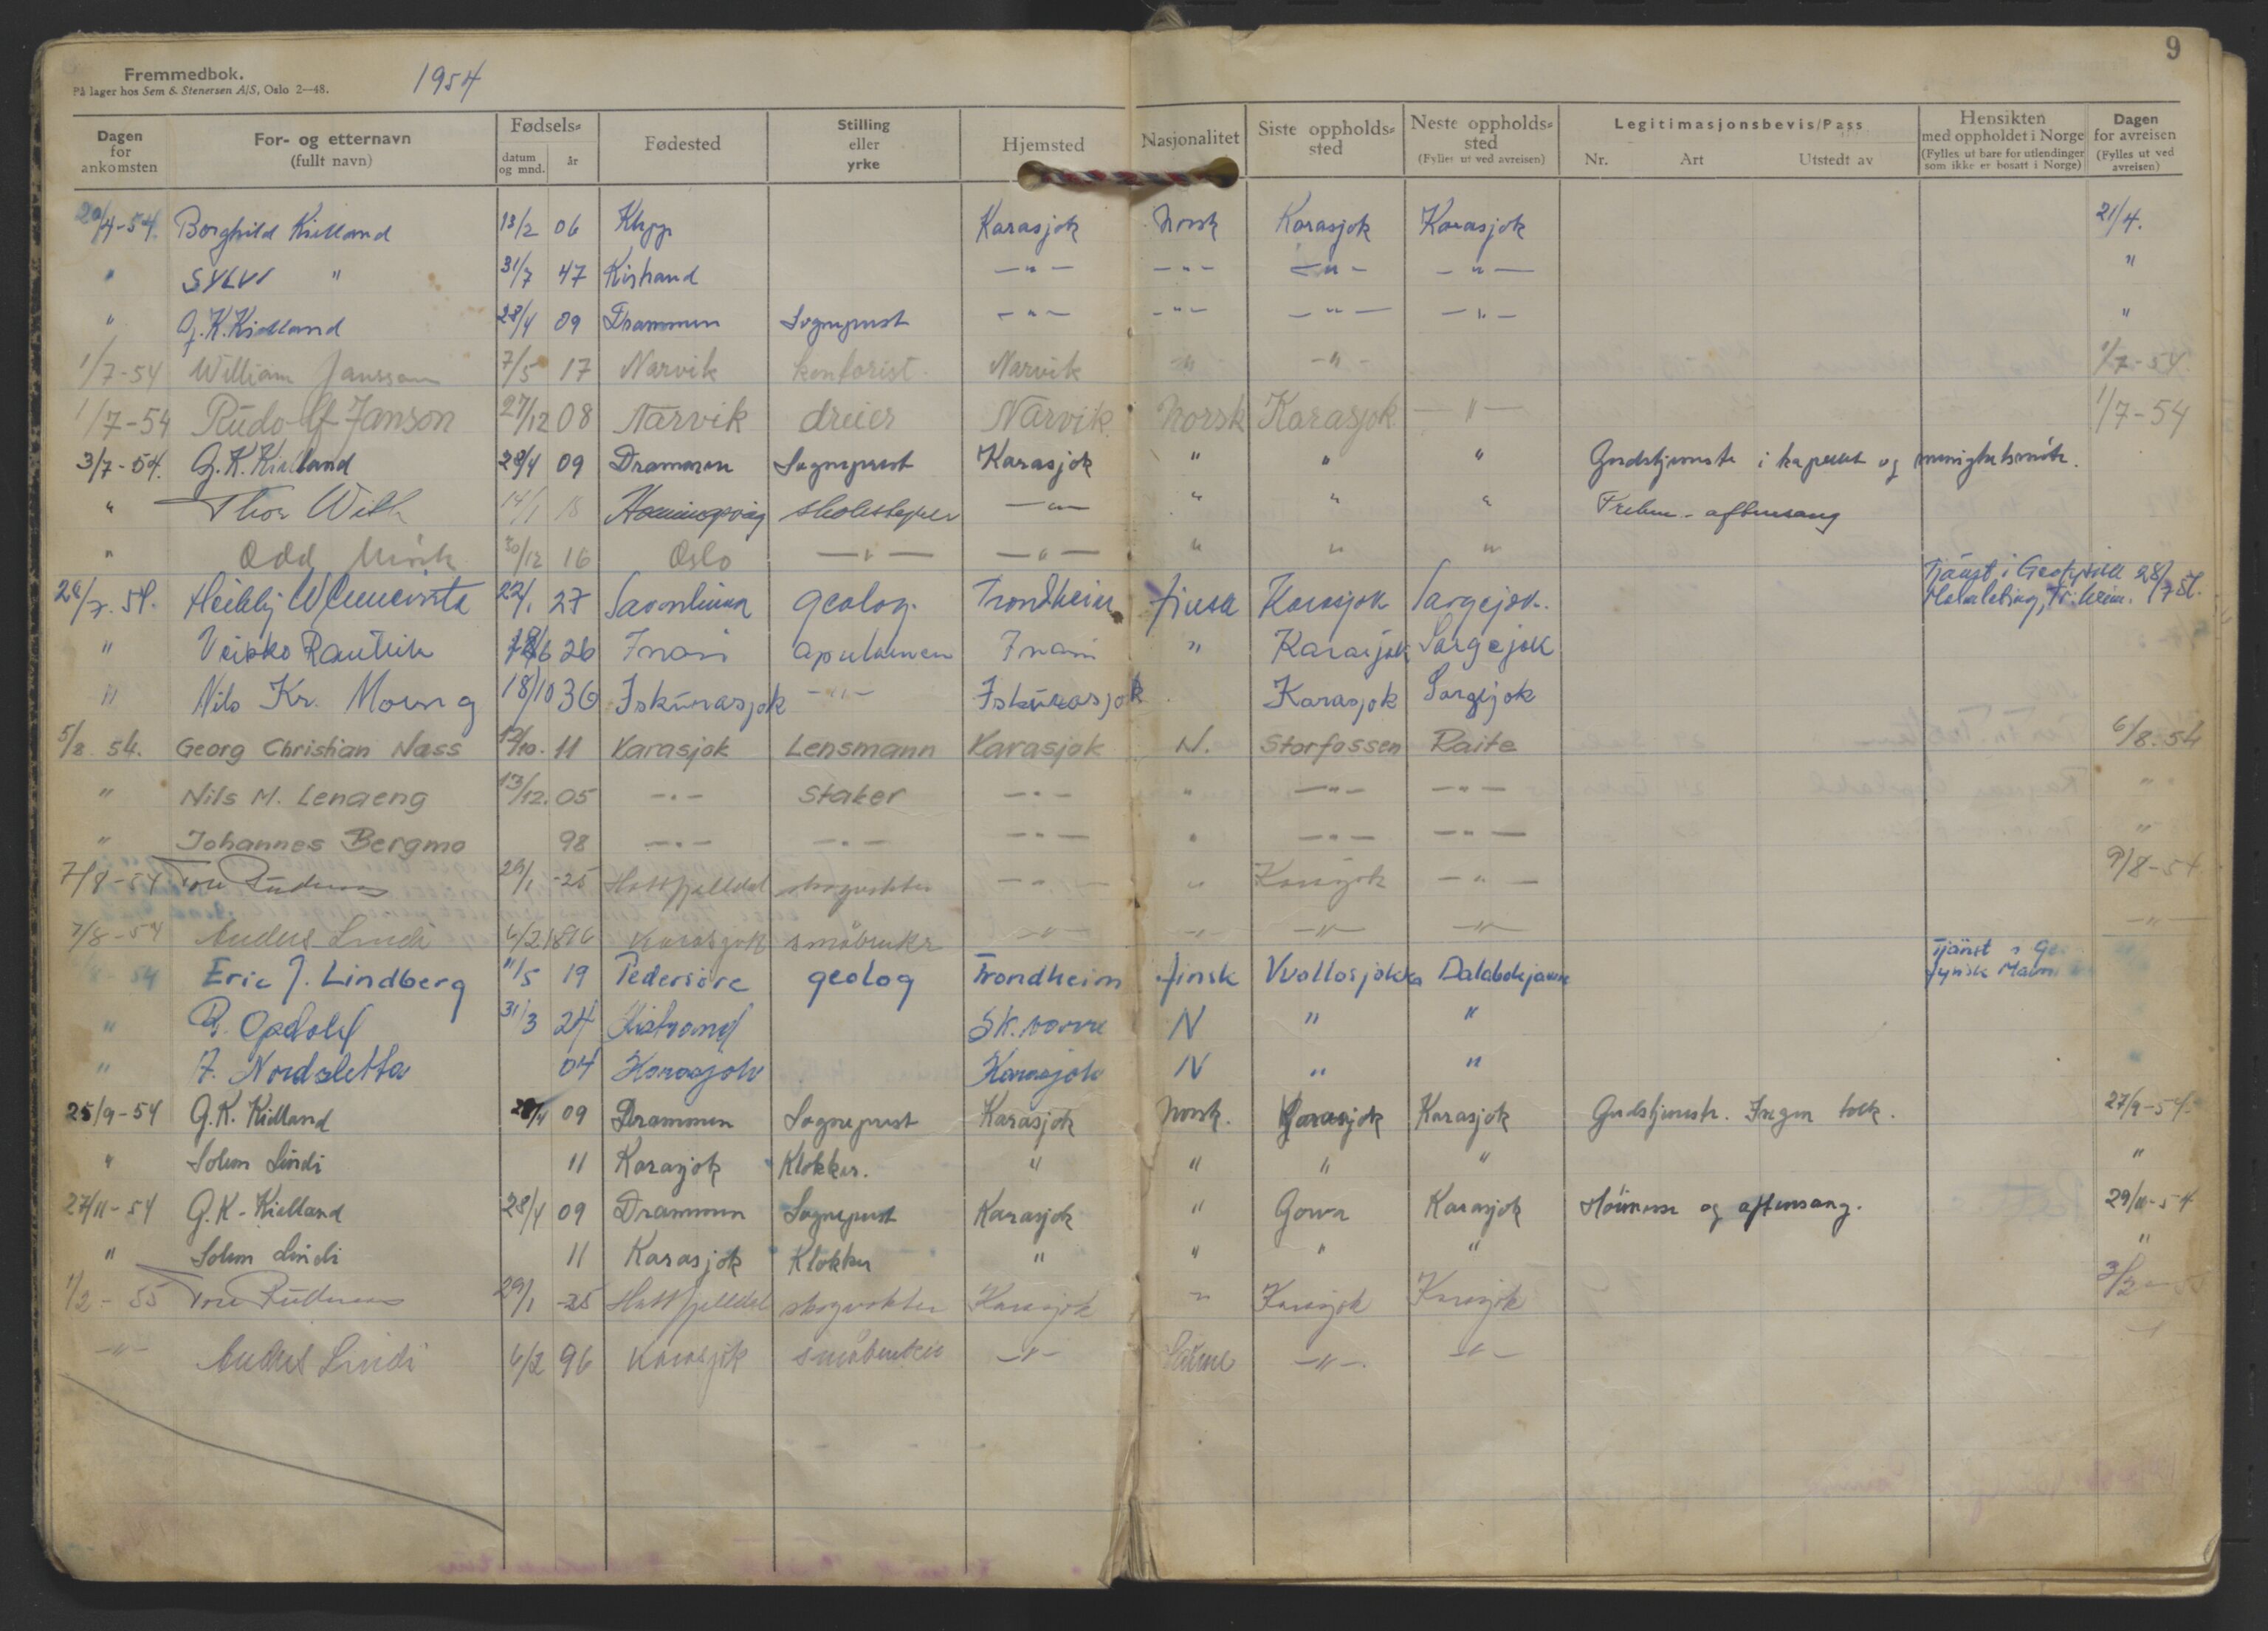 9
Fremmedbok.
På lager hos Sem & Stenersen A/S, Oslo 2—48.
1954
Dagen for ankomsten | For- og etternavn (fullt navn) | Fødsels= datum og mnd. | år | Fødested | Stilling eller yrke | Hjemsted | Nasjonalitet | Siste oppholds= sted | Neste oppholds= sted (Fylles ut ved avreisen) | Legitimasjonsbevis/Pass Nr. Art Utstedt av | Hensikten med oppholdet i Norge (Fylles ut bare for utlendinger som ikke er bosatt i Norge) | Dagen for avreisen (Fylles ut ved avreisen)
20/4-54. Borghild Kielland 13/2 06 Klepp Karasjok Norsk Karasjok Karasjok 21/4.
" SYLVI " 31/7 47 Kistrand —"— —"— —"— —"— "
" G.K. Kielland 28/4 09 Drammen Sogneprest —"— —"— —"— —"— "
1/7-54 William Janssen 7/5 17 Narvik kontorist. Narvik —"— —"— 1/7-54.
1/7-54 Rudolf Janson 27/12 08 Narvik dreier Narvik. Norsk Karasjok —"— 1/7-54
3/7-54. G.K. Kielland 28/4 09 Drammen Sogneprest Karasjok " " " Gudstjeneste i kapellet og menighetsmøte.
" Thor With 14/1 18 Honningsvåg skolestyrer —"— " " " aftensang
" Odd 30/12 16 Oslo —"— —"— " " "
28/7.54. Heikki 22/1 27 Savonlinna geolog. Trondheim finsk Karasjok Sargejok. Tjänst i Geofysisk Malmleting, Tr.heim. 28/7 54.
" Veikko 26 Inari apulainen Inari " Karasjok Sargejok
" Nils Kr. 18/10 36 Iskurasjok —"— Iskurasjok Karasjok Sargejok
5/8 54. Georg Christian Nass 12/10. 11 Karasjok Lensmann Karasjok N. Storfossen Raite 6/8.54
" Nils M. Lenaeng 13/12. 05 —"— Staker —"— " —"— —"— "
" Johannes Bergmo 98 —"— —"— —"— " —"— —"— "
7/8-54 Tore 29/1 -25 Hattfjelldal skogvokter —"— " Karasjok —"— 9/8-54
7/8-54 Anders Lindi 6/2 1896 Karasjok småbruker —"— —"— —"— —"— —"—
54 Eric J. Lindberg 11/5 19 Pedersöre geolog Trondheim finsk Vuollosjokka Tjänst
" 31/3 24 Kistrand N " "
" F. Nordsletta 04 Karasjok Karasjok N " "
25/9-54 G.K. Kielland 28/4 09 Drammen Sogneprest Karasjok Norsk. Karasjok Karasjok Gudstjeneste. Ingen tolk. 27/9-54.
" Solem Lindi 11 Karasjok Klokker. " " " " "
27/11-54 G.K. Kielland 28/4 09 Drammen Sogneprest Karasjok " Karasjok og aftensang. 29/11-54
" Solem Lindi 11 Karasjok Klokker " " " " "
1/2-55 Tore 29/1 -25 Hattfjelldal skogvokter Karasjok " Karasjok Karasjok 3/2
—"— Anders Lindi 6/2 96 Karasjok småbruker —"— Same —"— —"—